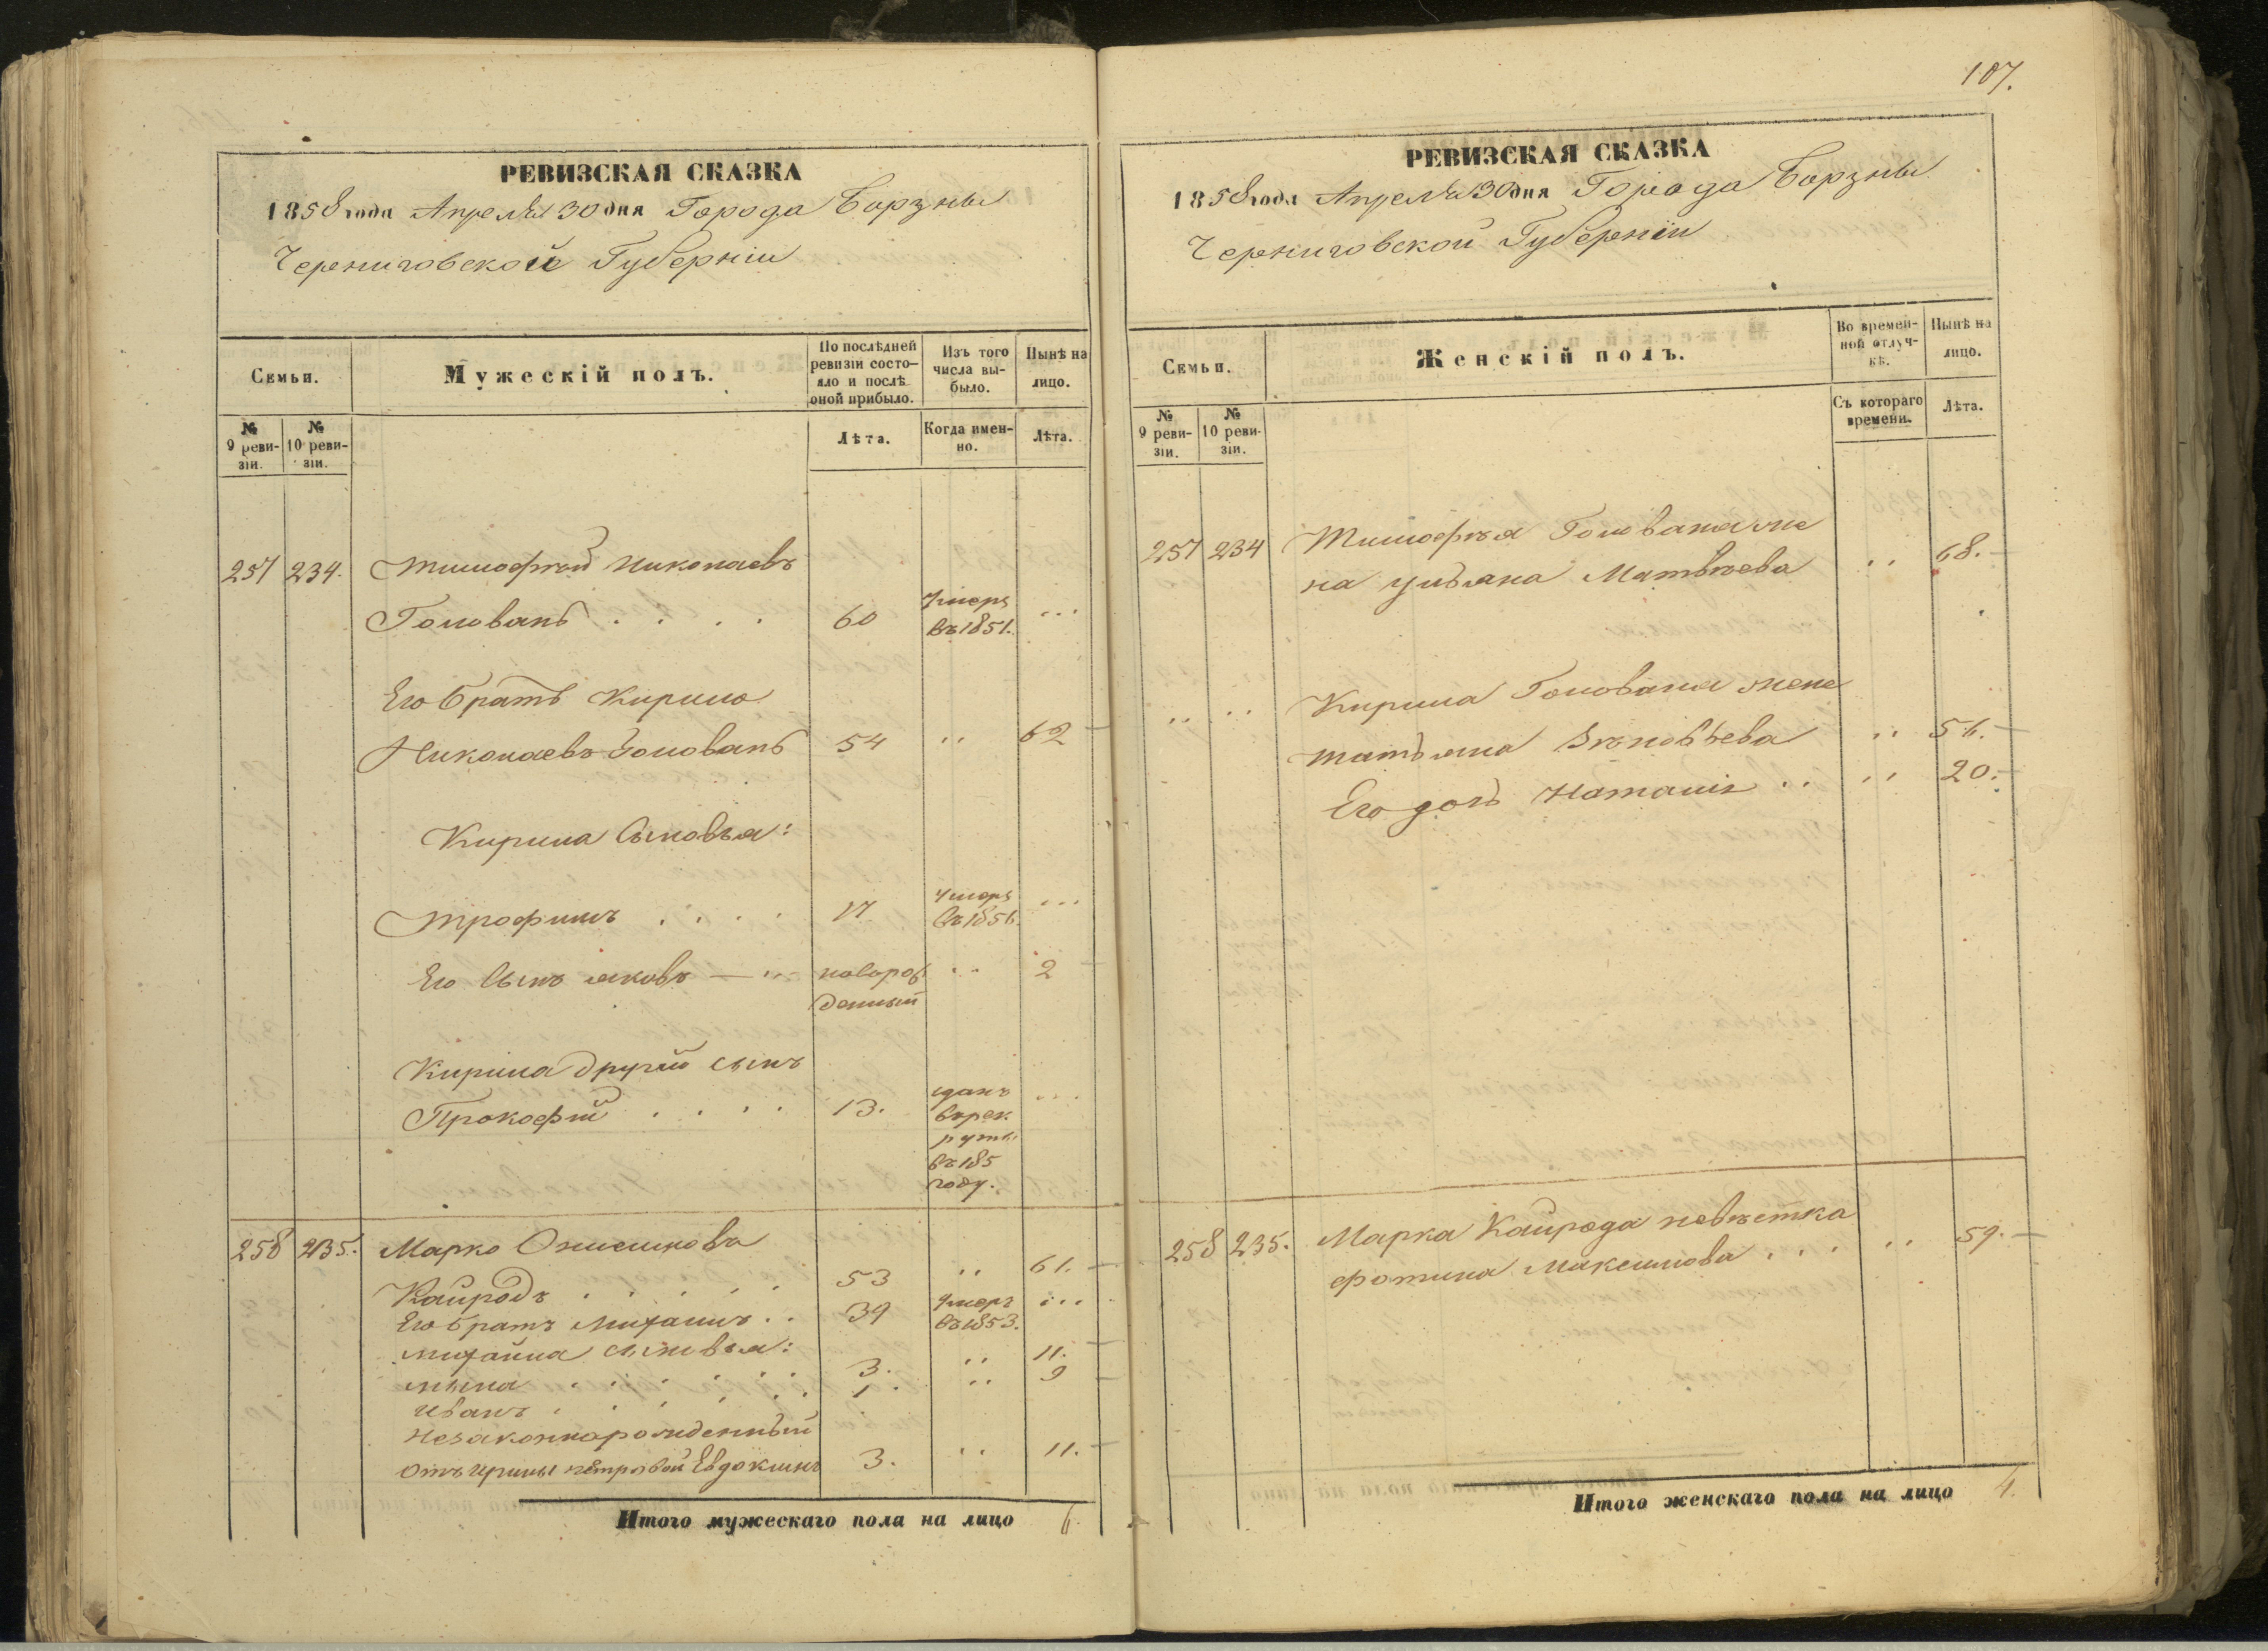 РЕВИЗСКАЯ СКАЗКА
1858 года Апреля 30 дня Города Борзны
Черниговской Губерніи
Семьи.
Мужескій полъ.
По послѣдней ревизіи состояло и послѣ оной прибыло.
Изъ того числа выбыло.
Нынѣ на лицо.
№ 9 ревизіи.
№ 10 ревизіи.
Лѣта.
Когда именно.
Лѣта.
257 234. Тимофѣй Николаевъ
Голованъ . . . . 60 Умеръ въ 1851. ...
Его братъ Кирило
Николаевъ Голованъ 54 .. 62
Кирила Сыновья:
Трофимъ . . . . 17 Умеръ въ 1856 ...
Его Сынъ Яковъ — .. новорож
денный .. 2
Кирила другій сынъ
Прокофій . . . . 13. сданъ
врек
руты
въ 185
году. ...
258 235. Марко
Кайродъ . . . . . 53 .. 61.
Его братъ Михаилъ . . 39 Умеръ въ 1853. ...
Михайла сыновья:
. . . . . 3. .. 11.
Иванъ . . . . . 1 .. 9
Незаконнорожденный
отъ Ирины Петровой Евдокимъ 3. .. 11.
Итого мужескаго пола на лицо 6.
107.
РЕВИЗСКАЯ СКАЗКА
1858 года Апреля 30 дня Города Борзны
Черниговской Губерніи
Семьи.
Женскій полъ.
Во временной отлучкѣ.
Нынѣ на лицо.
№ 9 ревизіи.
№ 10 ревизіи.
Съ котораго времени.
Лѣта.
257 234 Тимофѣя Голована же
на Ульяна Матвѣева .. 68.
.. .. Кирила Голована жена
Татьяна Зѣновѣева .. 56.
Его дочь Наталія .. .. 20.
258 235. Марка Кайрода невѣстка
Фотина Максимова . . . .. 59.
Итого женскаго пола на лицо 4.